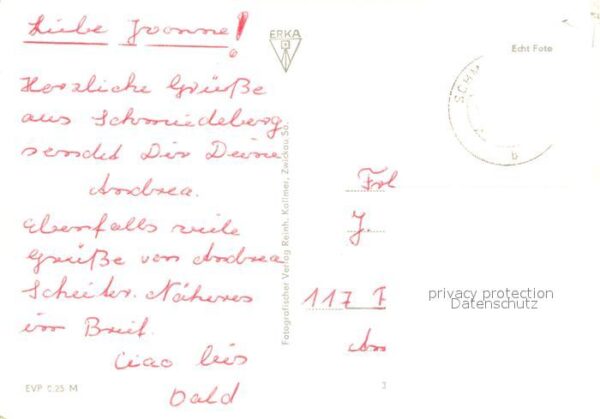 Liebe Ivonne!
Herzliche Grüße
aus Schmiedeberg
sendet Dir Deine
Andrea.
Ebenfalls viele
Grüße von Andrea
Scheiter. Näheres
im Brief.
Ciao bis
bald
EVP 0.25 M
ERKA
Fotografischer Verlag Reinh. Kallmer, Zwickau Sa.
Echt Foto
SCHM
b
Frl
J.
117 F
Am
3
privacy protection
Datenschutz